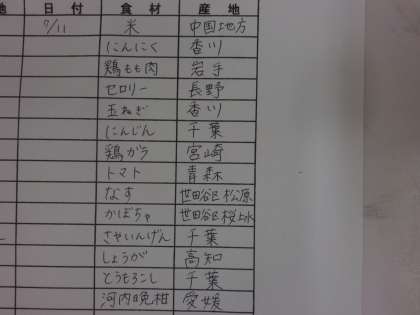 地 日付 食材 産地
7/11 米 中国地方
にんにく 香川
鶏もも肉 岩手
セロリー 長野
玉ねぎ 香川
にんじん 千葉
鶏ガラ 宮崎
トマト 青森
なす 世田谷区松原
かぼちゃ 世田谷区桜上水
さやいんげん 千葉
しょうが 高知
とうもろこし 千葉
河内晩柑 愛媛